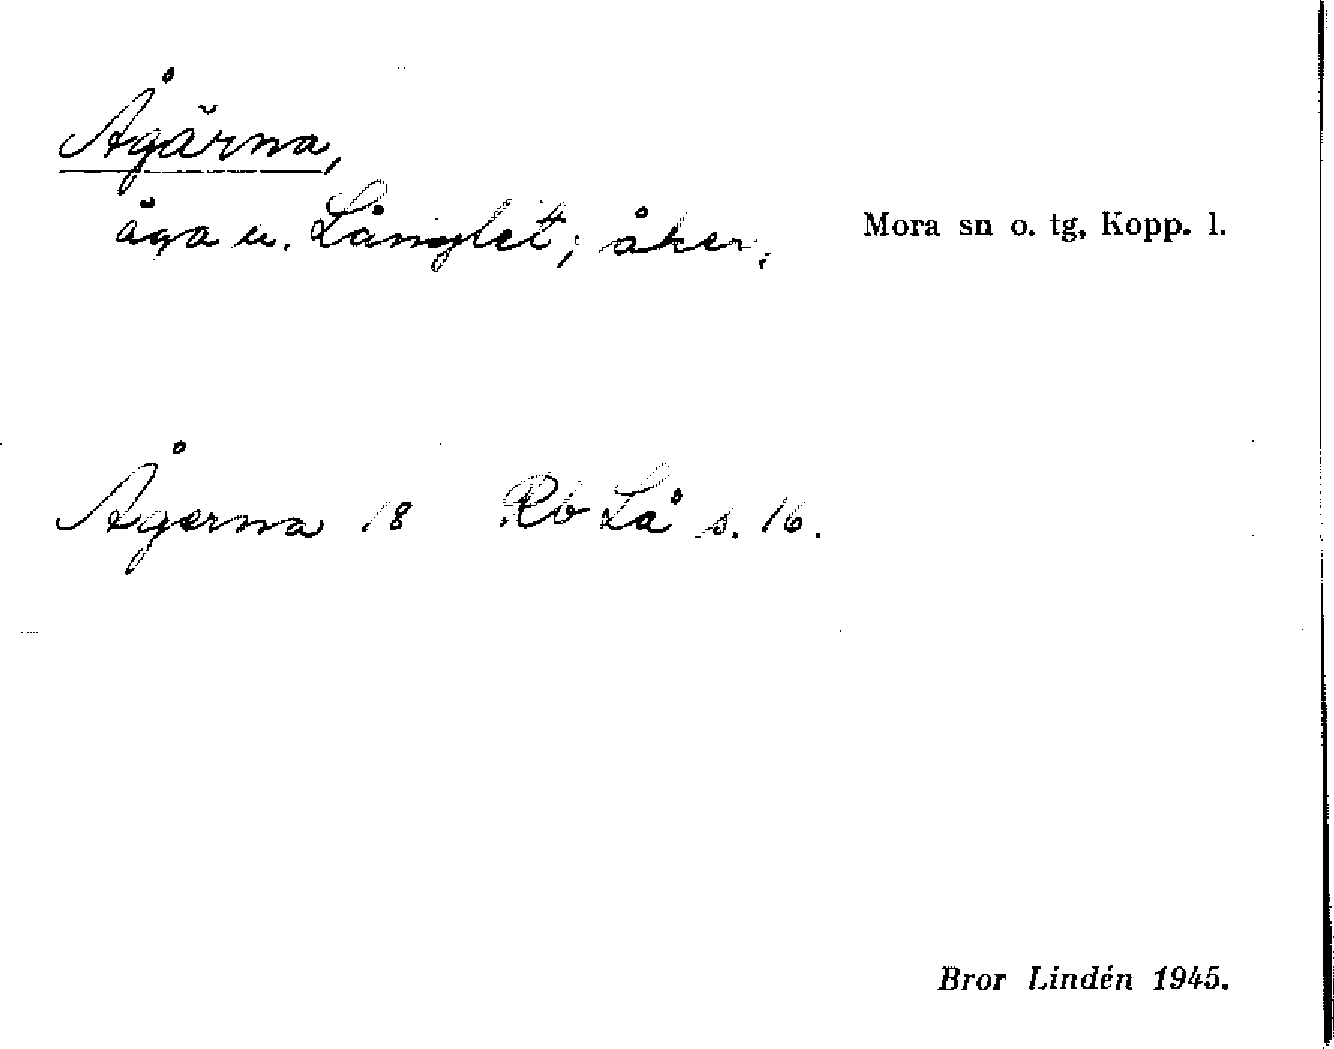 Ågärna,
äga u. Långlet; åker.
Mora sn o. tg, Kopp. l.
Ågerna 18 Rb Lå s. 16.
Bror Lindén 1945.